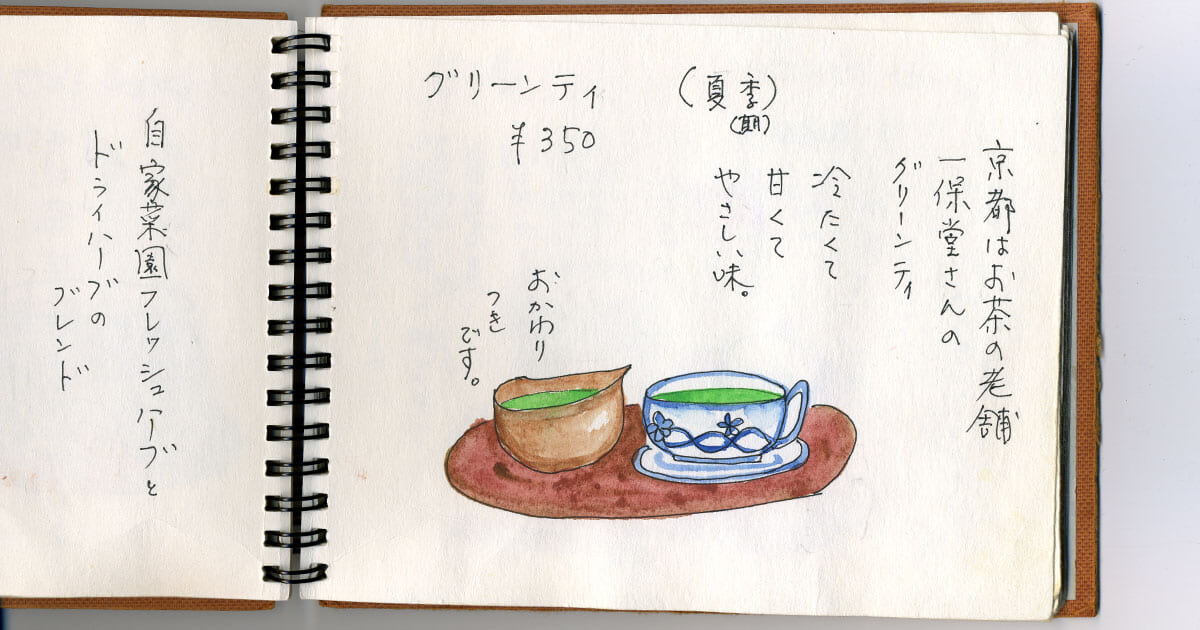 グリーンティ
¥350
(夏季)
(期)
京都はお茶の老舗
一保堂さんの
グリーンティ
冷たくて
甘くて
やさしい味。
おかわり
つき
です。
自家菜園フレッシュハーブと
ドライハーブの
ブレンド